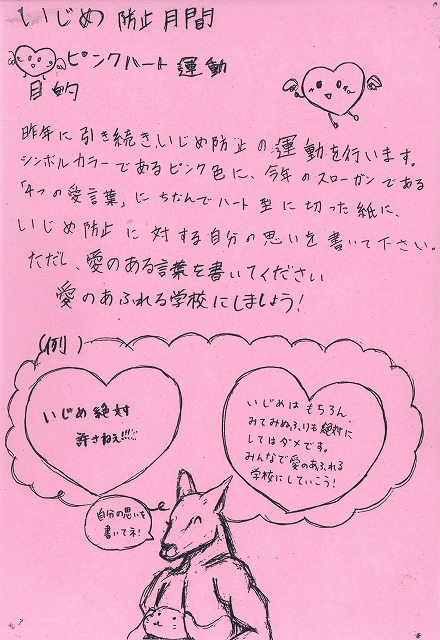 いじめ防止月間
ピンクハート運動
目的
昨年に引き続きいじめ防止の運動を行います。
シンボルカラーであるピンク色に、今年のスローガンである
「4つの愛言葉」にちなんでハート型に切った紙に、
いじめ防止に対する自分の思いを書いて下さい。
ただし、愛のある言葉を書いてください
愛のあふれる学校にしましょう!
(例)
いじめ絶対
許さねぇ!!!!!
いじめはもちろん、
みてみぬふりも絶対に
してはダメです。
みんなで愛のあふれる
学校にしていこう!
自分の思いを
書いてネ!